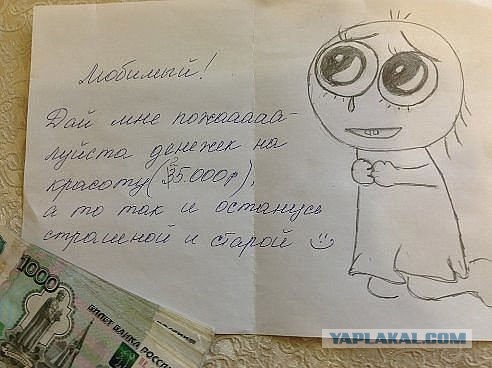 Любимый!
Дай мне пожааааа-
луйста денежек на
красоту (35.000р),
а то так и останусь
страшной и старой
1000
БИЛЕТ БАНКА РОССИИ
YAPLAKAL.COM